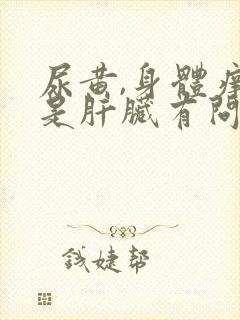 尿黄,身體癢
是肝臟有問
钱婕帮